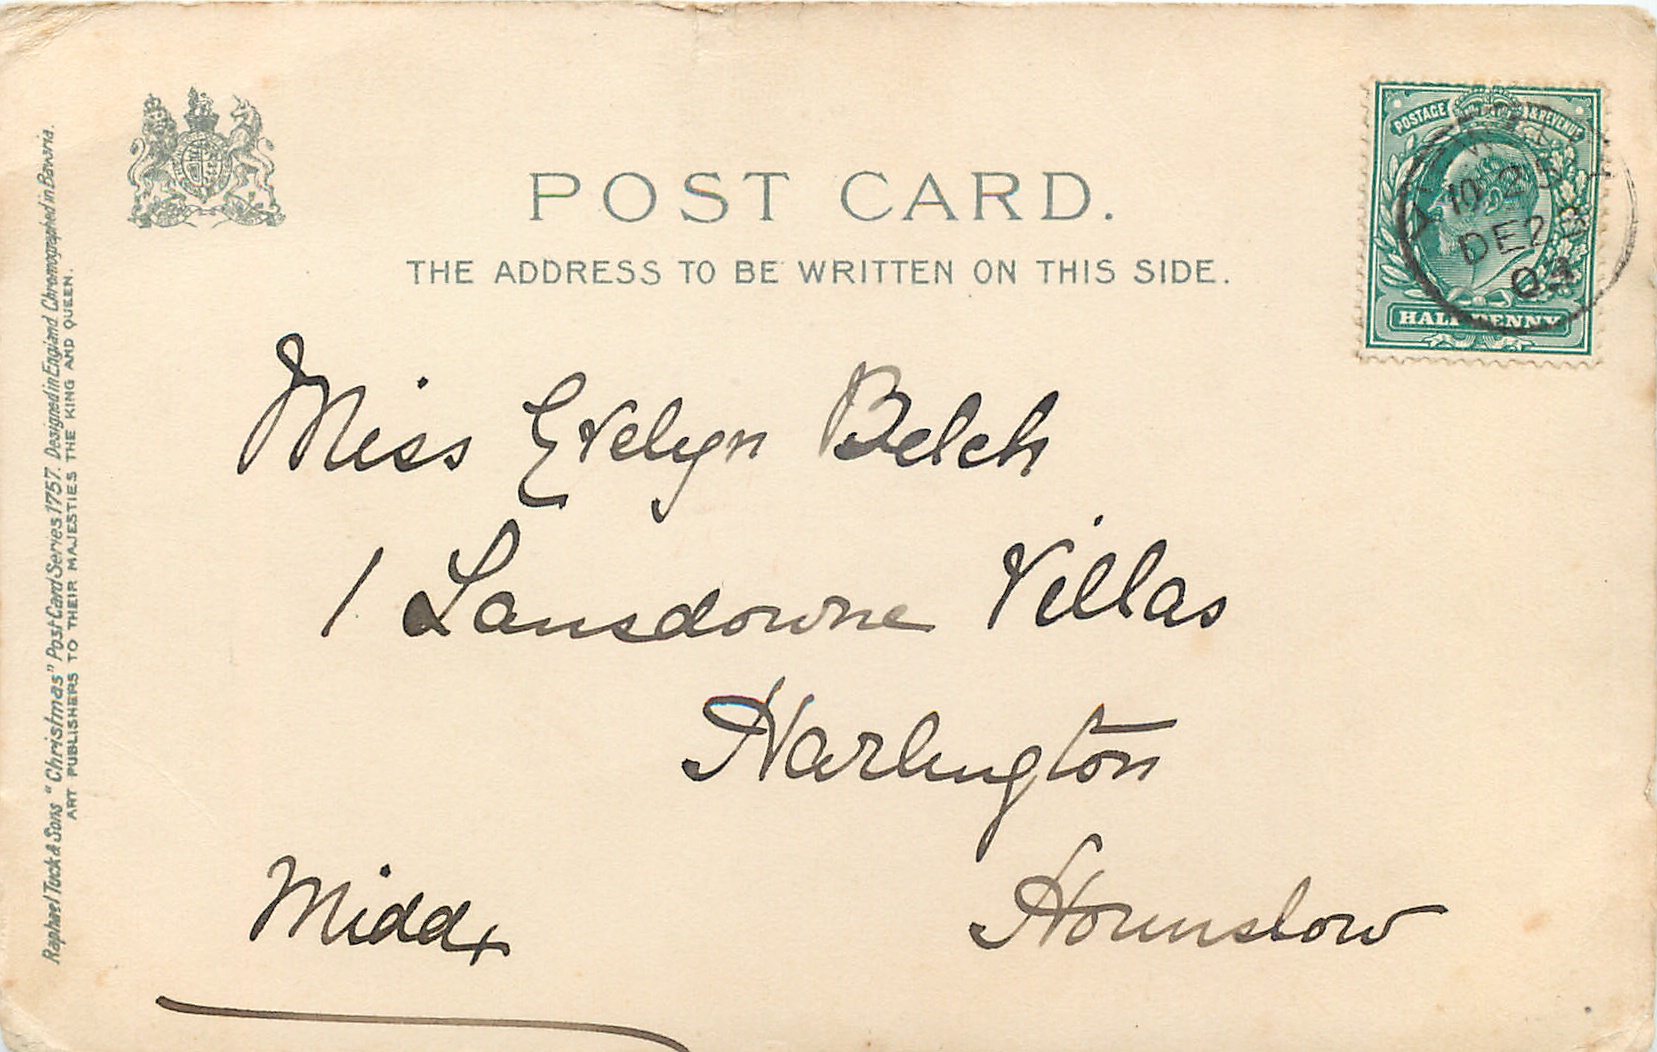 POST CARD.
THE ADDRESS TO BE WRITTEN ON THIS SIDE.
POSTAGE & REVENUE
HALF PENNY
10 25
DE 23
03
Miss Evelyn Belch
1 Lansdowne Villas
Harlington
Hounslow
Middx
Raphael Tuck & Sons "Christmas" Post Card Series 1757. Designed in England. Chromographed in Bavaria.
ART PUBLISHERS TO THEIR MAJESTIES THE KING AND QUEEN.